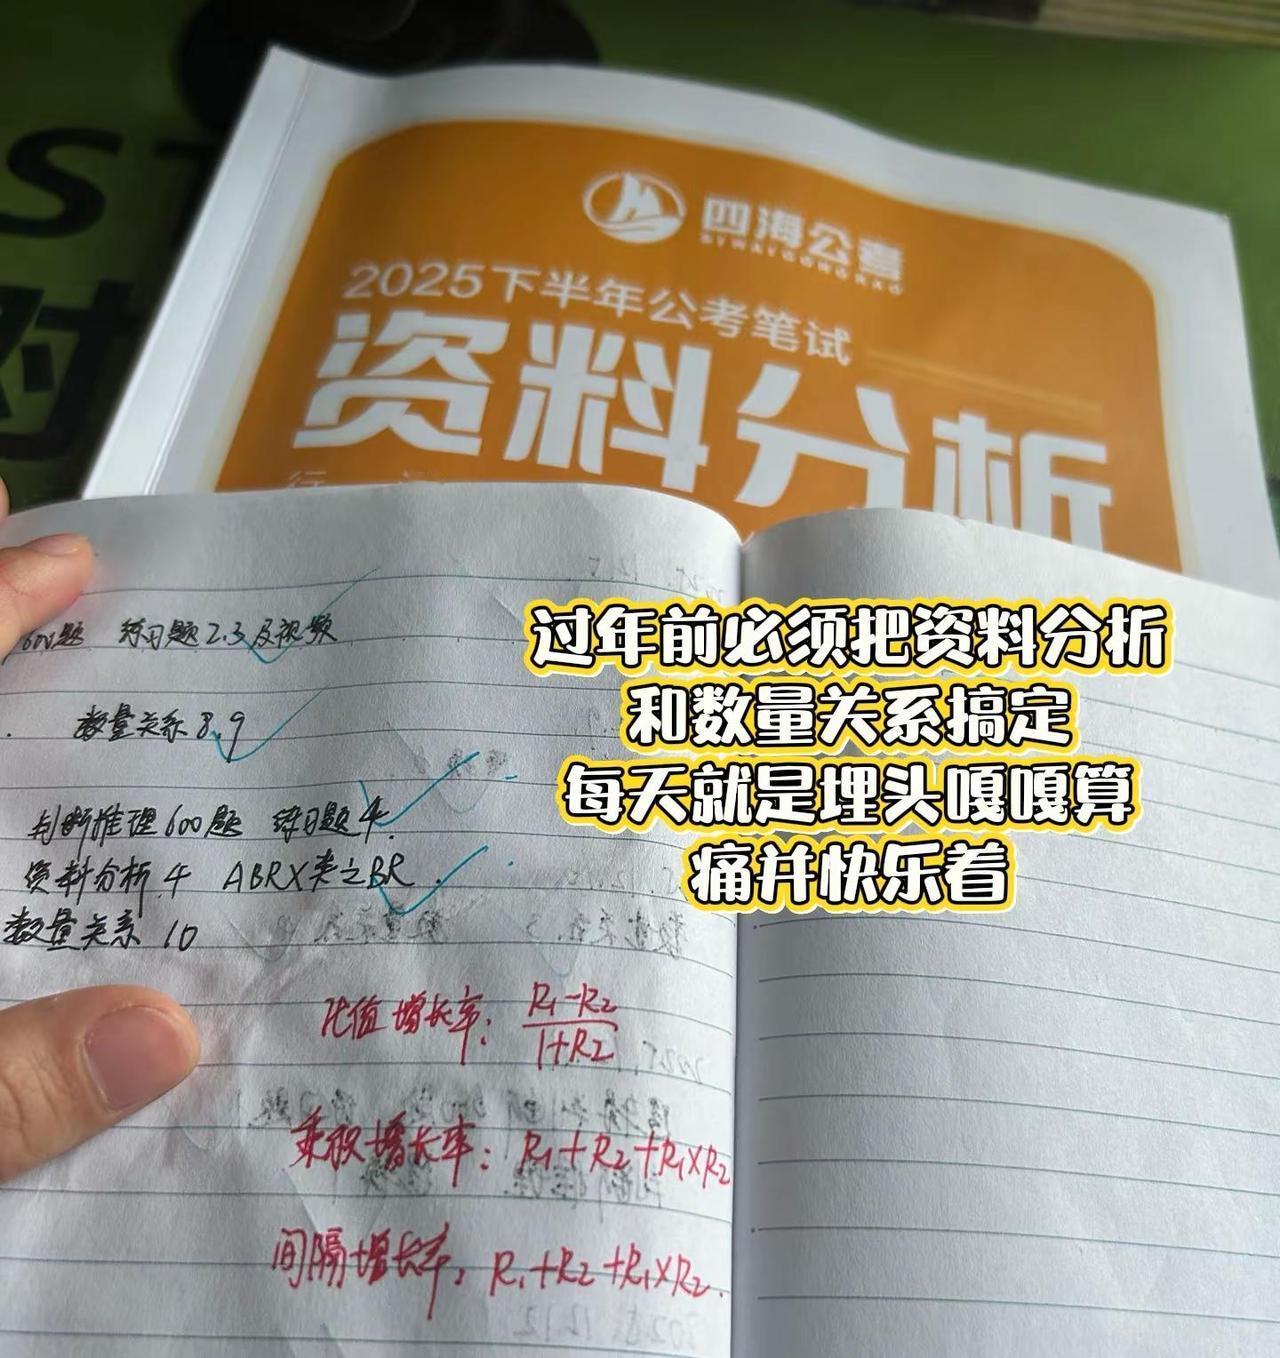 四海公考
SIHAIGONGKAO
2025下半年公考笔试
资料分析
600题 练习题2.3及视频
数量关系8.9
判断推理600题 练习题4.
资料分析4 ABRX类之BR.
数量关系10
过年前必须把资料分析
和数量关系搞定
每天就是埋头嘎嘎算
痛并快乐着
比值增长率: R₁-R₂
1+R₂
乘积增长率: R₁+R₂+R₁×R₂
间隔增长率: R₁+R₂+R₁×R₂.